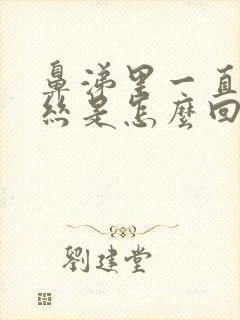 鼻涕里一直
絲是怎麼回
劉建堂